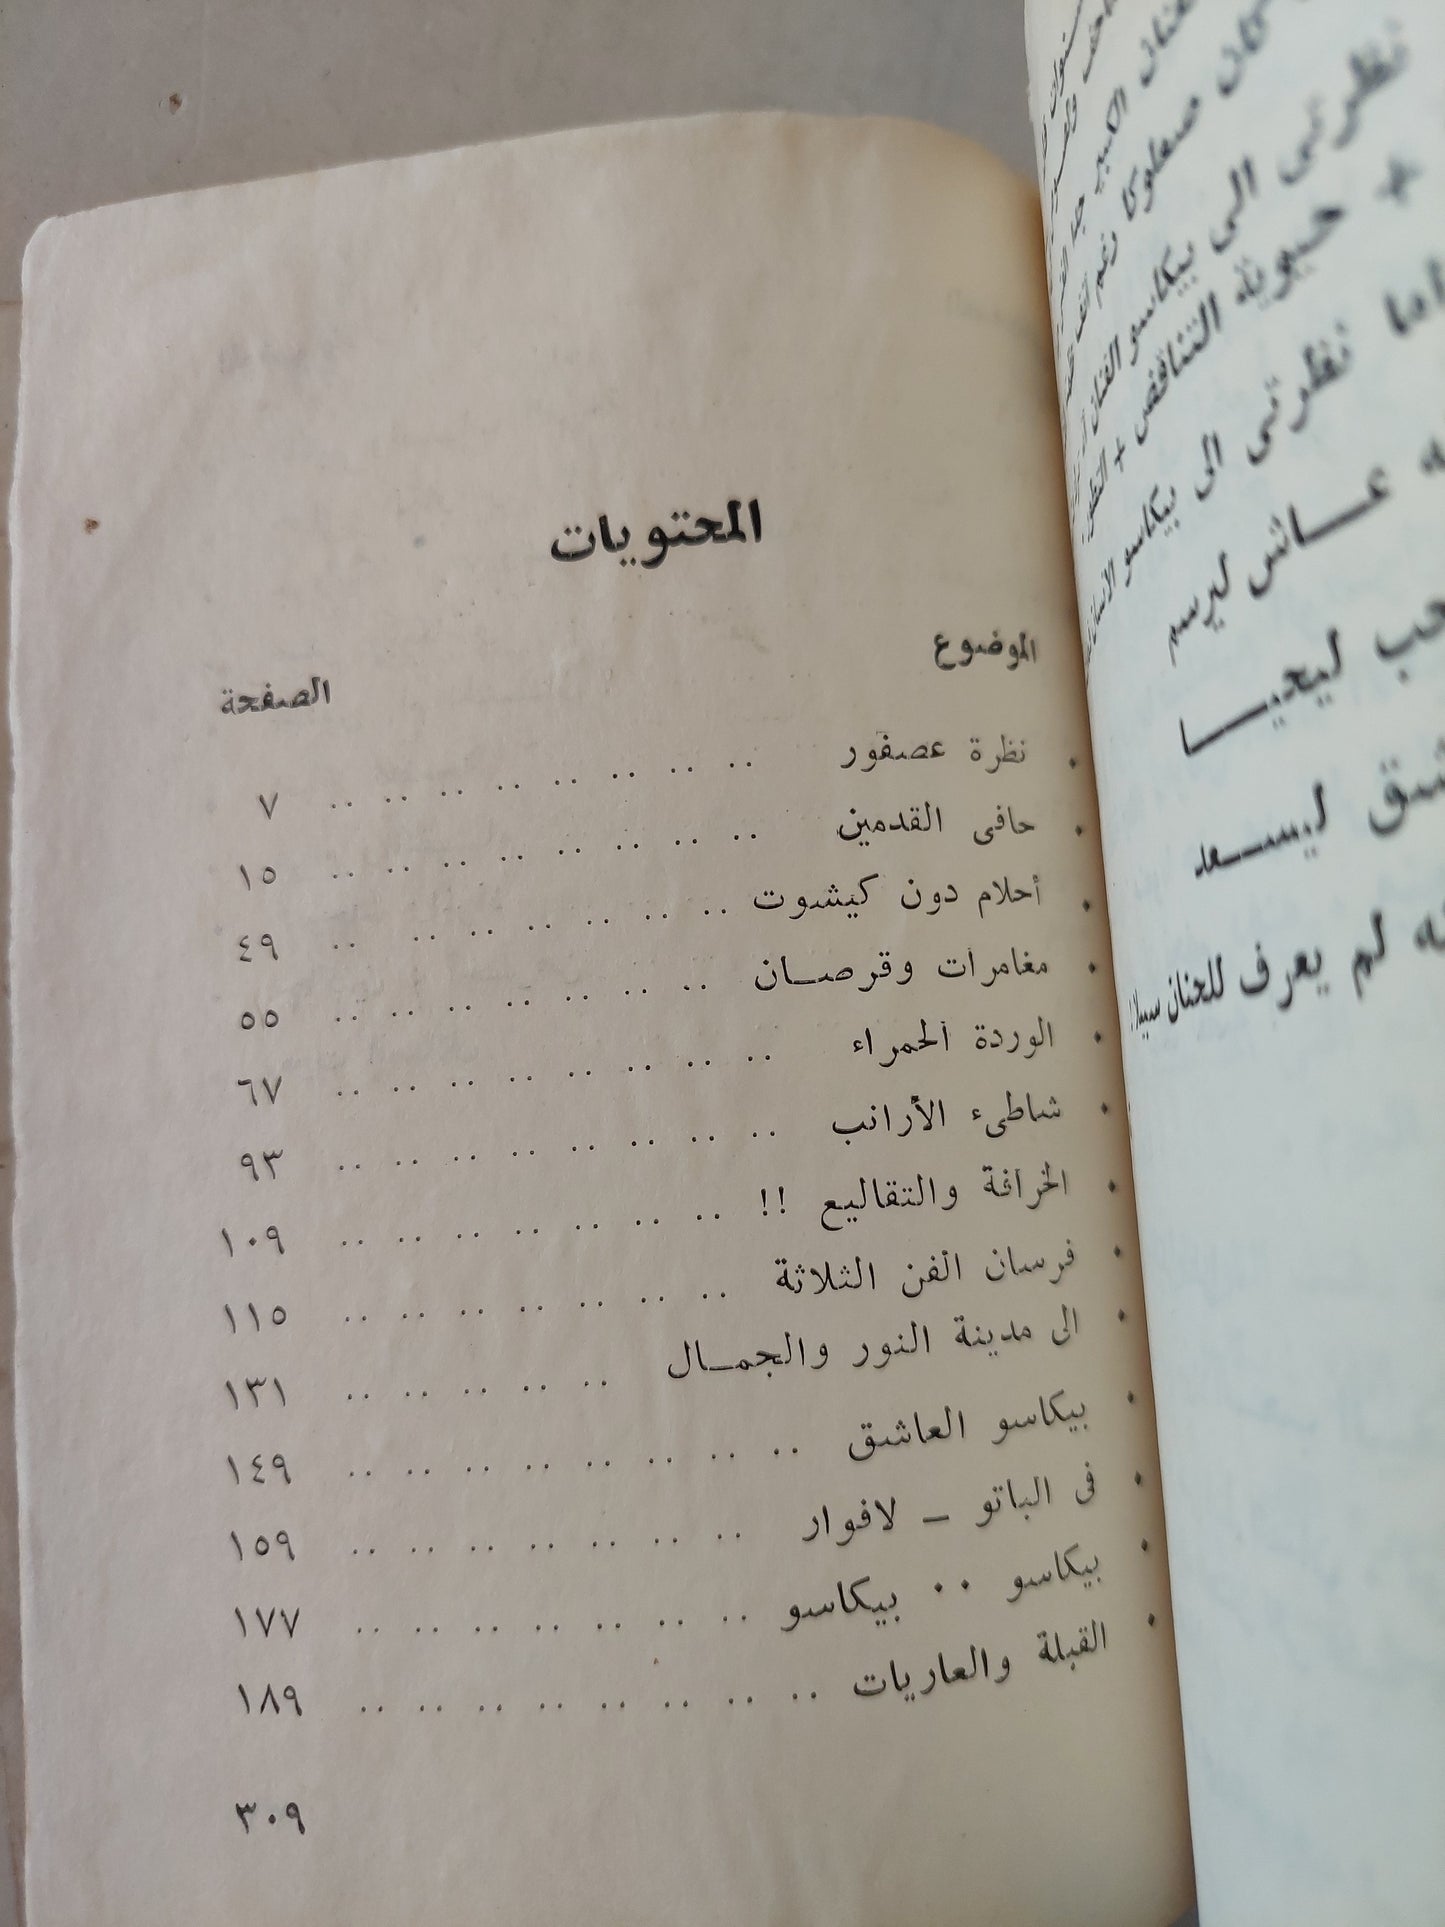 المحتويات
الموضوع الصفحة
• نظرة عصفور .. .. .. .. .. .. .. .. ٧
• حافى القدمين .. .. .. .. .. .. .. .. ١٥
• أحلام دون كيشوت .. .. .. .. .. .. .. ٤٩
• مغامرات وقرصـان .. .. .. .. .. .. .. ٥٥
• الوردة الحمراء .. .. .. .. .. .. .. .. ٦٧
• شاطىء الأرانب .. .. .. .. .. .. .. .. ٩٣
• الخرافة والتقاليع !! .. .. .. .. .. .. .. ١٠٩
• فرسان الفن الثلاثة .. .. .. .. .. .. .. ١١٥
• الى مدينة النور والجمـال .. .. .. .. .. ١٣١
• بيكاسو العاشق .. .. .. .. .. .. .. .. ١٤٩
• فى الباتو ـ لافوار .. .. .. .. .. .. .. ١٥٩
• بيكاسو .. بيكاسو .. .. .. .. .. .. .. ١٧٧
• القبلة والعاريات .. .. .. .. .. .. .. .. ١٨٩
٣٠٩
الكبير
صعلوكا رغم
نظرتى الى بيكاسو الفنان
+ حيوية التناقض + التطور
نظرتى الى بيكاسو الانسان
عـاش ليرسم
ليحيـا
ليسـعد
لم يعرف للحنان سبيلا !